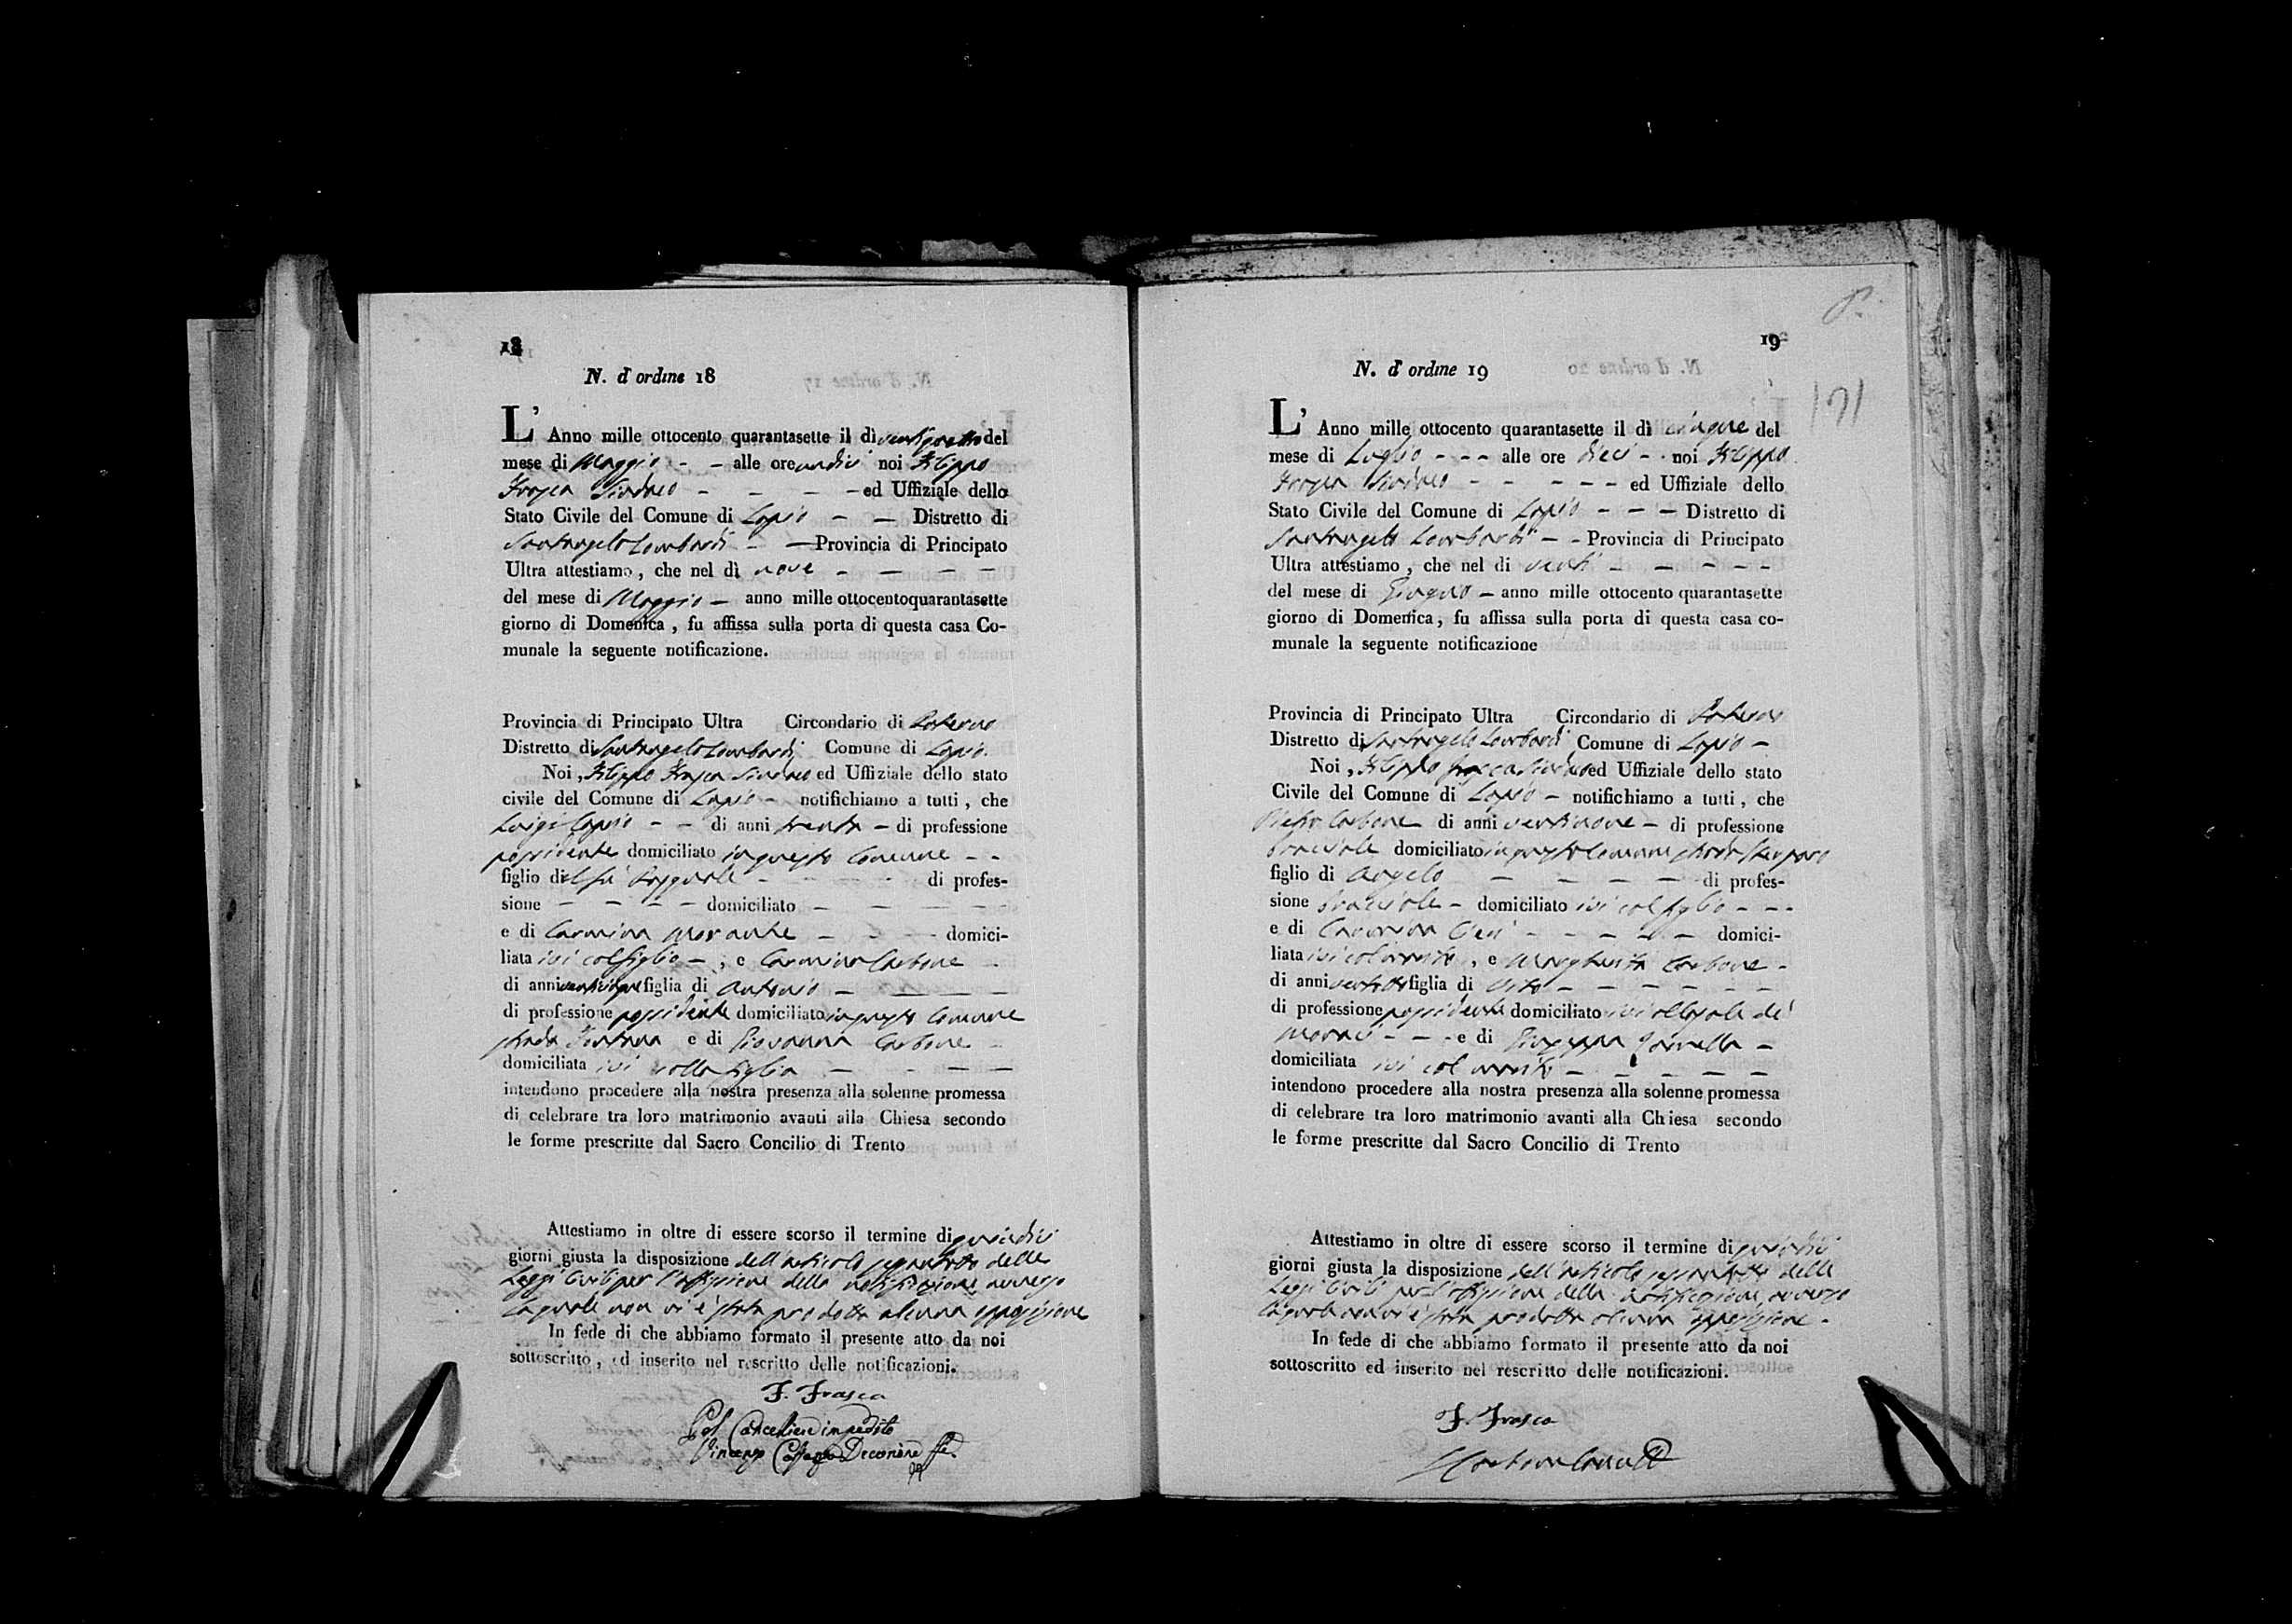 18
N. d'ordine 18
L' Anno mille ottocento quarantasette il dì ventiquattro del
mese di Maggio - - alle ore undici noi Filippo
Frasca Sindaco - - - - ed Uffiziale dello
Stato Civile del Comune di Lapio - - Distretto di
Santangelo Lombardi - - Provincia di Principato
Ultra attestiamo, che nel dì nove - - - -
del mese di Maggio - anno mille ottocentoquarantasette
giorno di Domenica, fu affissa sulla porta di questa casa Co-
munale la seguente notificazione.
Provincia di Principato Ultra Circondario di Paterno
Distretto di Santangelo Lombardi Comune di Lapio.
Noi, Filippo Frasca Sindaco ed Uffiziale dello stato
civile del Comune di Lapio - notifichiamo a tutti, che
Luigi - - di anni trenta - di professione
possidente domiciliato in questo Comune - -
figlio del fù Pasquale - - - - di profes-
sione - - - - domiciliato - - - - -
e di Carmina Morante - - - - domici-
liata ivi col figlio -, e Carmina Carbone -
di anni venticinque figlia di Antonio - - - -
di professione possidente domiciliato in questo Comune
strada Fontana e di Giovanna Carbone -
domiciliata ivi colla figlia - - - -
intendono procedere alla nostra presenza alla solenne promessa
di celebrare tra loro matrimonio avanti alla Chiesa secondo
le forme prescritte dal Sacro Concilio di Trento
Attestiamo in oltre di essere scorso il termine di quindici
giorni giusta la disposizione dell'articolo settantotto delle
Leggi Civili per l'affissione della notificazione, avverso
la quale non vi è stata prodotta alcuna opposizione
In fede di che abbiamo formato il presente atto da noi
sottoscritto, ed inserito nel rescritto delle notificazioni.
F. Frasca
Pel Cancelliere impedito
Vincenzo Decurione
19
N. d'ordine 19
171
L' Anno mille ottocento quarantasette il dì cinque del
mese di Luglio - - - alle ore dieci - - noi Filippo
Frasca Sindaco - - - - - ed Uffiziale dello
Stato Civile del Comune di Lapio - - - Distretto di
Santangelo Lombardi - - Provincia di Principato
Ultra attestiamo, che nel di venti - - - - -
del mese di Giugno - anno mille ottocento quarantasette
giorno di Domenica, fu affissa sulla porta di questa casa co-
munale la seguente notificazione
Provincia di Principato Ultra Circondario di Paterno
Distretto di Santangelo Lombardi Comune di Lapio -
Noi, Filippo Frasca Sindaco ed Uffiziale dello stato
Civile del Comune di Lapio - notifichiamo a tutti, che
Pietro Carbone di anni ventinove - di professione
bracciale domiciliato in questo Comune strada
figlio di Angelo - - - - - di profes-
sione bracciale - domiciliato ivi col figlio - - -
e di - - - - - domici-
liata ivi col marito, e Margherita Carbone -
di anni ventotto figlia di Vito - - - - - -
di professione possidente domiciliato ivi
- - - e di Giuseppa -
domiciliata ivi col marito - - - - -
intendono procedere alla nostra presenza alla solenne promessa
di celebrare tra loro matrimonio avanti alla Chiesa secondo
le forme prescritte dal Sacro Concilio di Trento
Attestiamo in oltre di essere scorso il termine di quindici
giorni giusta la disposizione dell'articolo settantotto delle
Leggi Civili per l'affissione della notificazione, avverso
la quale non vi è stata prodotta alcuna opposizione -
In fede di che abbiamo formato il presente atto da noi
sottoscritto ed inserito nel rescritto delle notificazioni.
F. Frasca